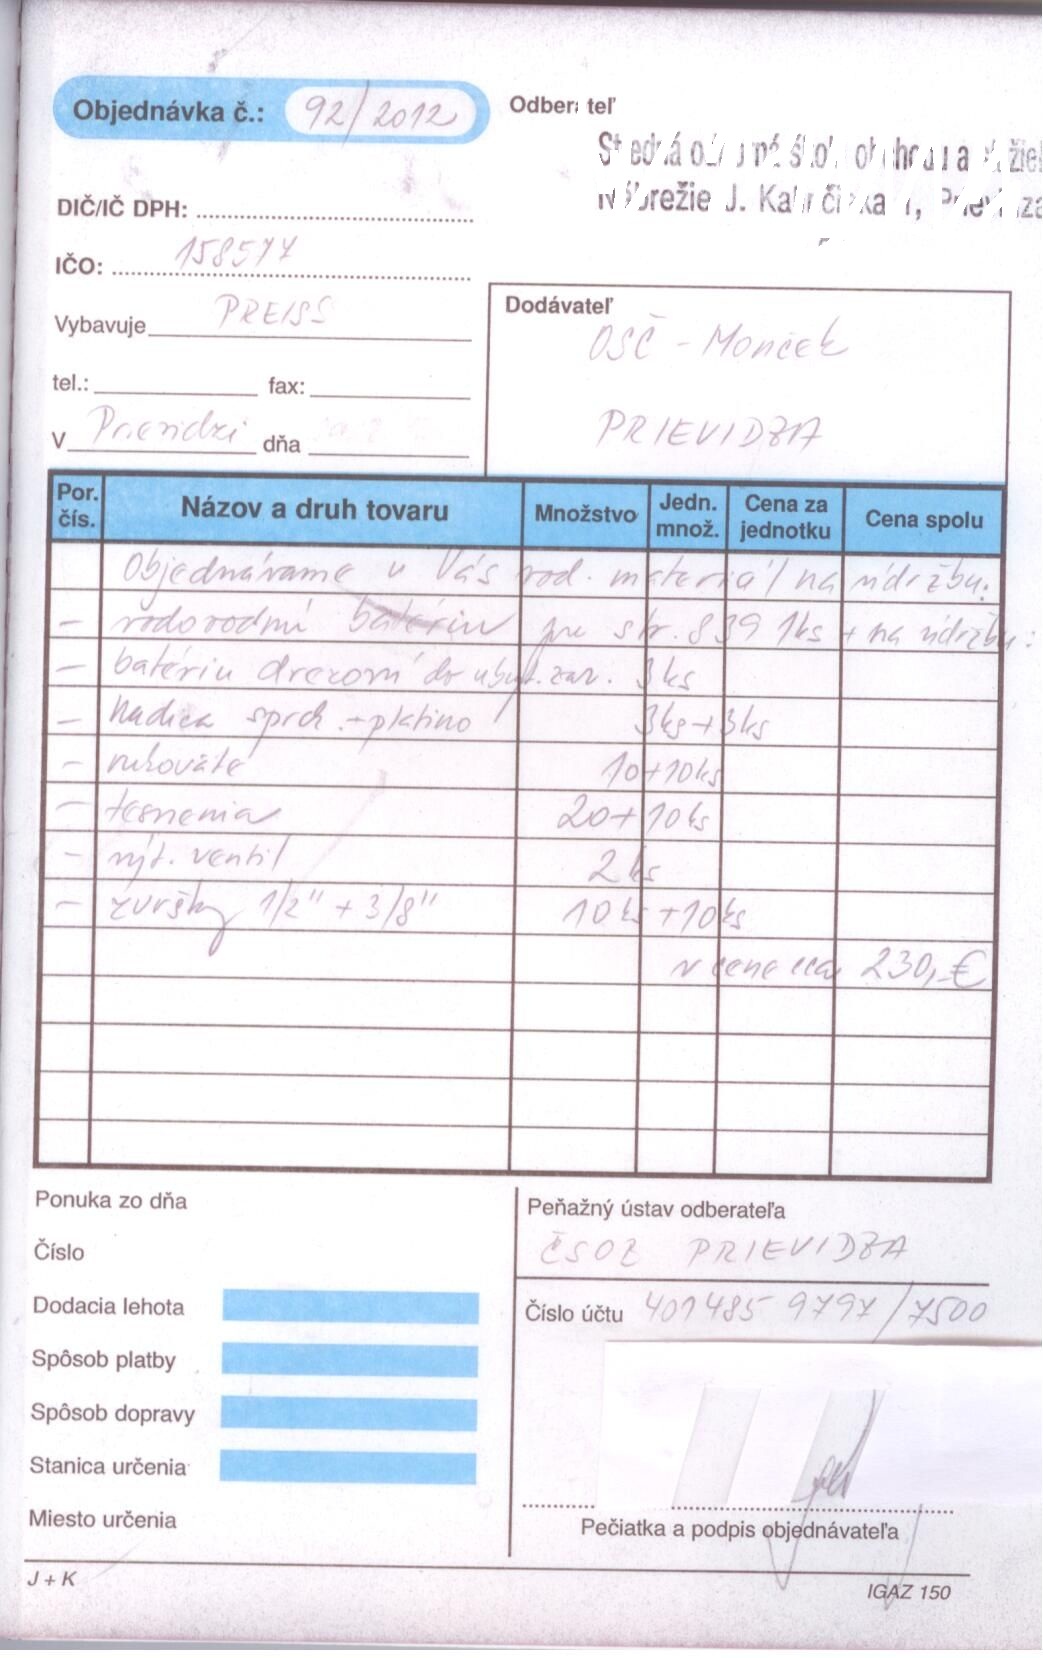 Objednávka č.: 92/2012
Odberateľ
Stredná odborná škola obchodu a služieb
Nábrežie J. Kalinčiaka 1, Prievidza
DIČ/IČ DPH:
IČO: 158577
Vybavuje PREISS
tel.: fax:
V Prievidzi dňa
Dodávateľ
OSČ - Monček
PRIEVIDZA
Por. čís. Názov a druh tovaru Množstvo Jedn. množ. Cena za jednotku Cena spolu
Objednávame u Vás vod. materiál na údržbu:
- vodovodnú batériu pre str. 839 1ks + na údržbu:
- batériu drezovú do ubyt. zar. 3ks
- hadica sprch. + platino 3ks + 3ks
- rukoväte 10 + 10ks
- tesnenia 20 + 10ks
- výt. ventil 2ks
- zvršky 1/2" + 3/8" 10ks + 10ks
v cene cca 230,-€
Ponuka zo dňa
Číslo
Dodacia lehota
Spôsob platby
Spôsob dopravy
Stanica určenia
Miesto určenia
Peňažný ústav odberateľa
ČSOB PRIEVIDZA
Číslo účtu 401485 9797/7500
Pečiatka a podpis objednávateľa
J + K
IGAZ 150